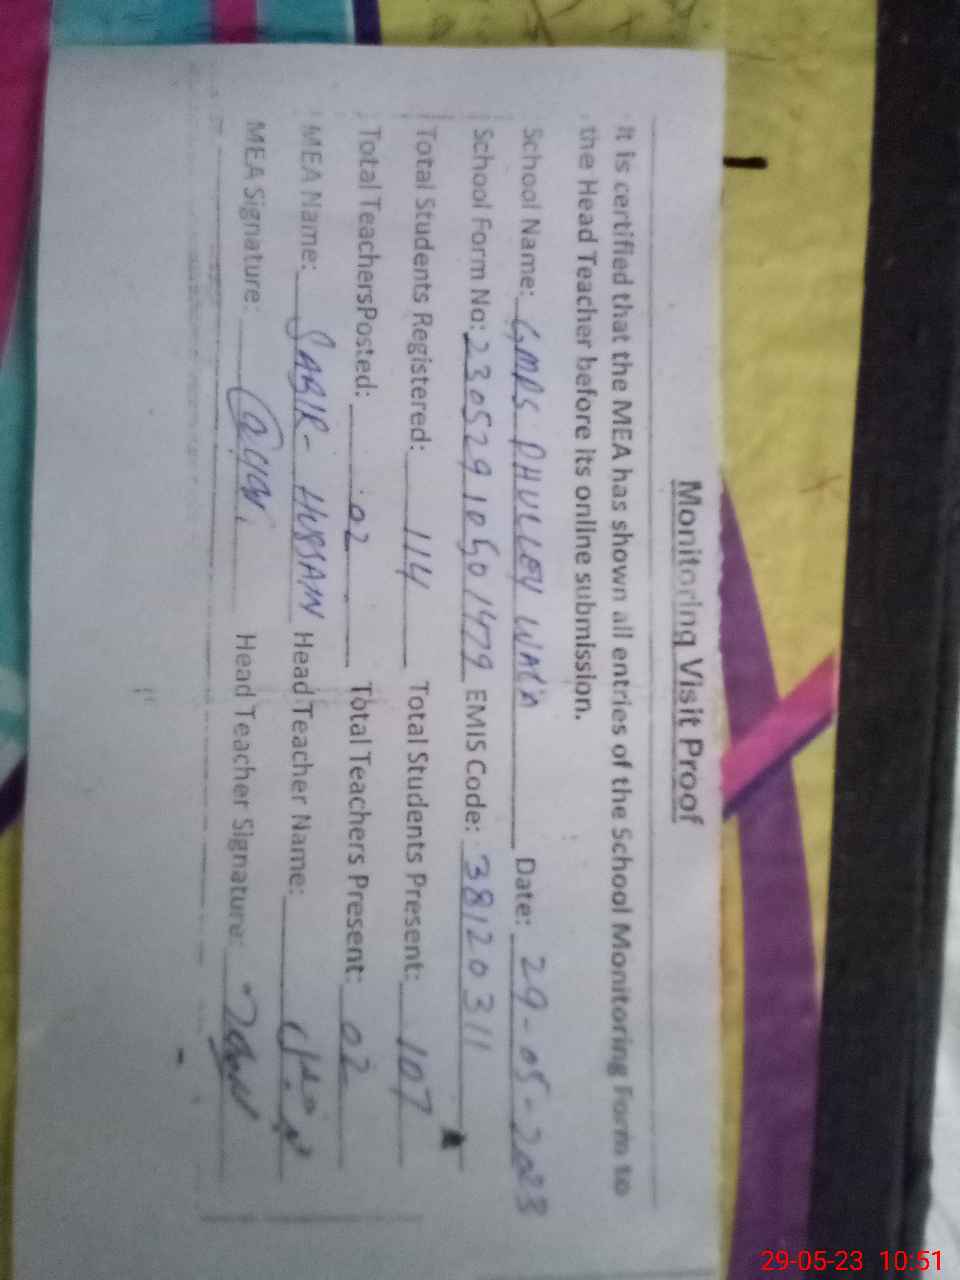 Monitoring Visit Proof
It is certified that the MEA has shown all entries of the School Monitoring Form to
the Head Teacher before its online submission.
School Name: GMPS DHULLEY WALA Date: 29-05-2023
School Form No: 23052910501479 EMIS Code: 38120311
Total Students Registered: 114 Total Students Present: 107
Total TeachersPosted: 02 Total Teachers Present: 02
MEA Name: SABIR-HUSSAIN Head Teacher Name:
MEA Signature: Head Teacher Signature:
29-05-23 10:51